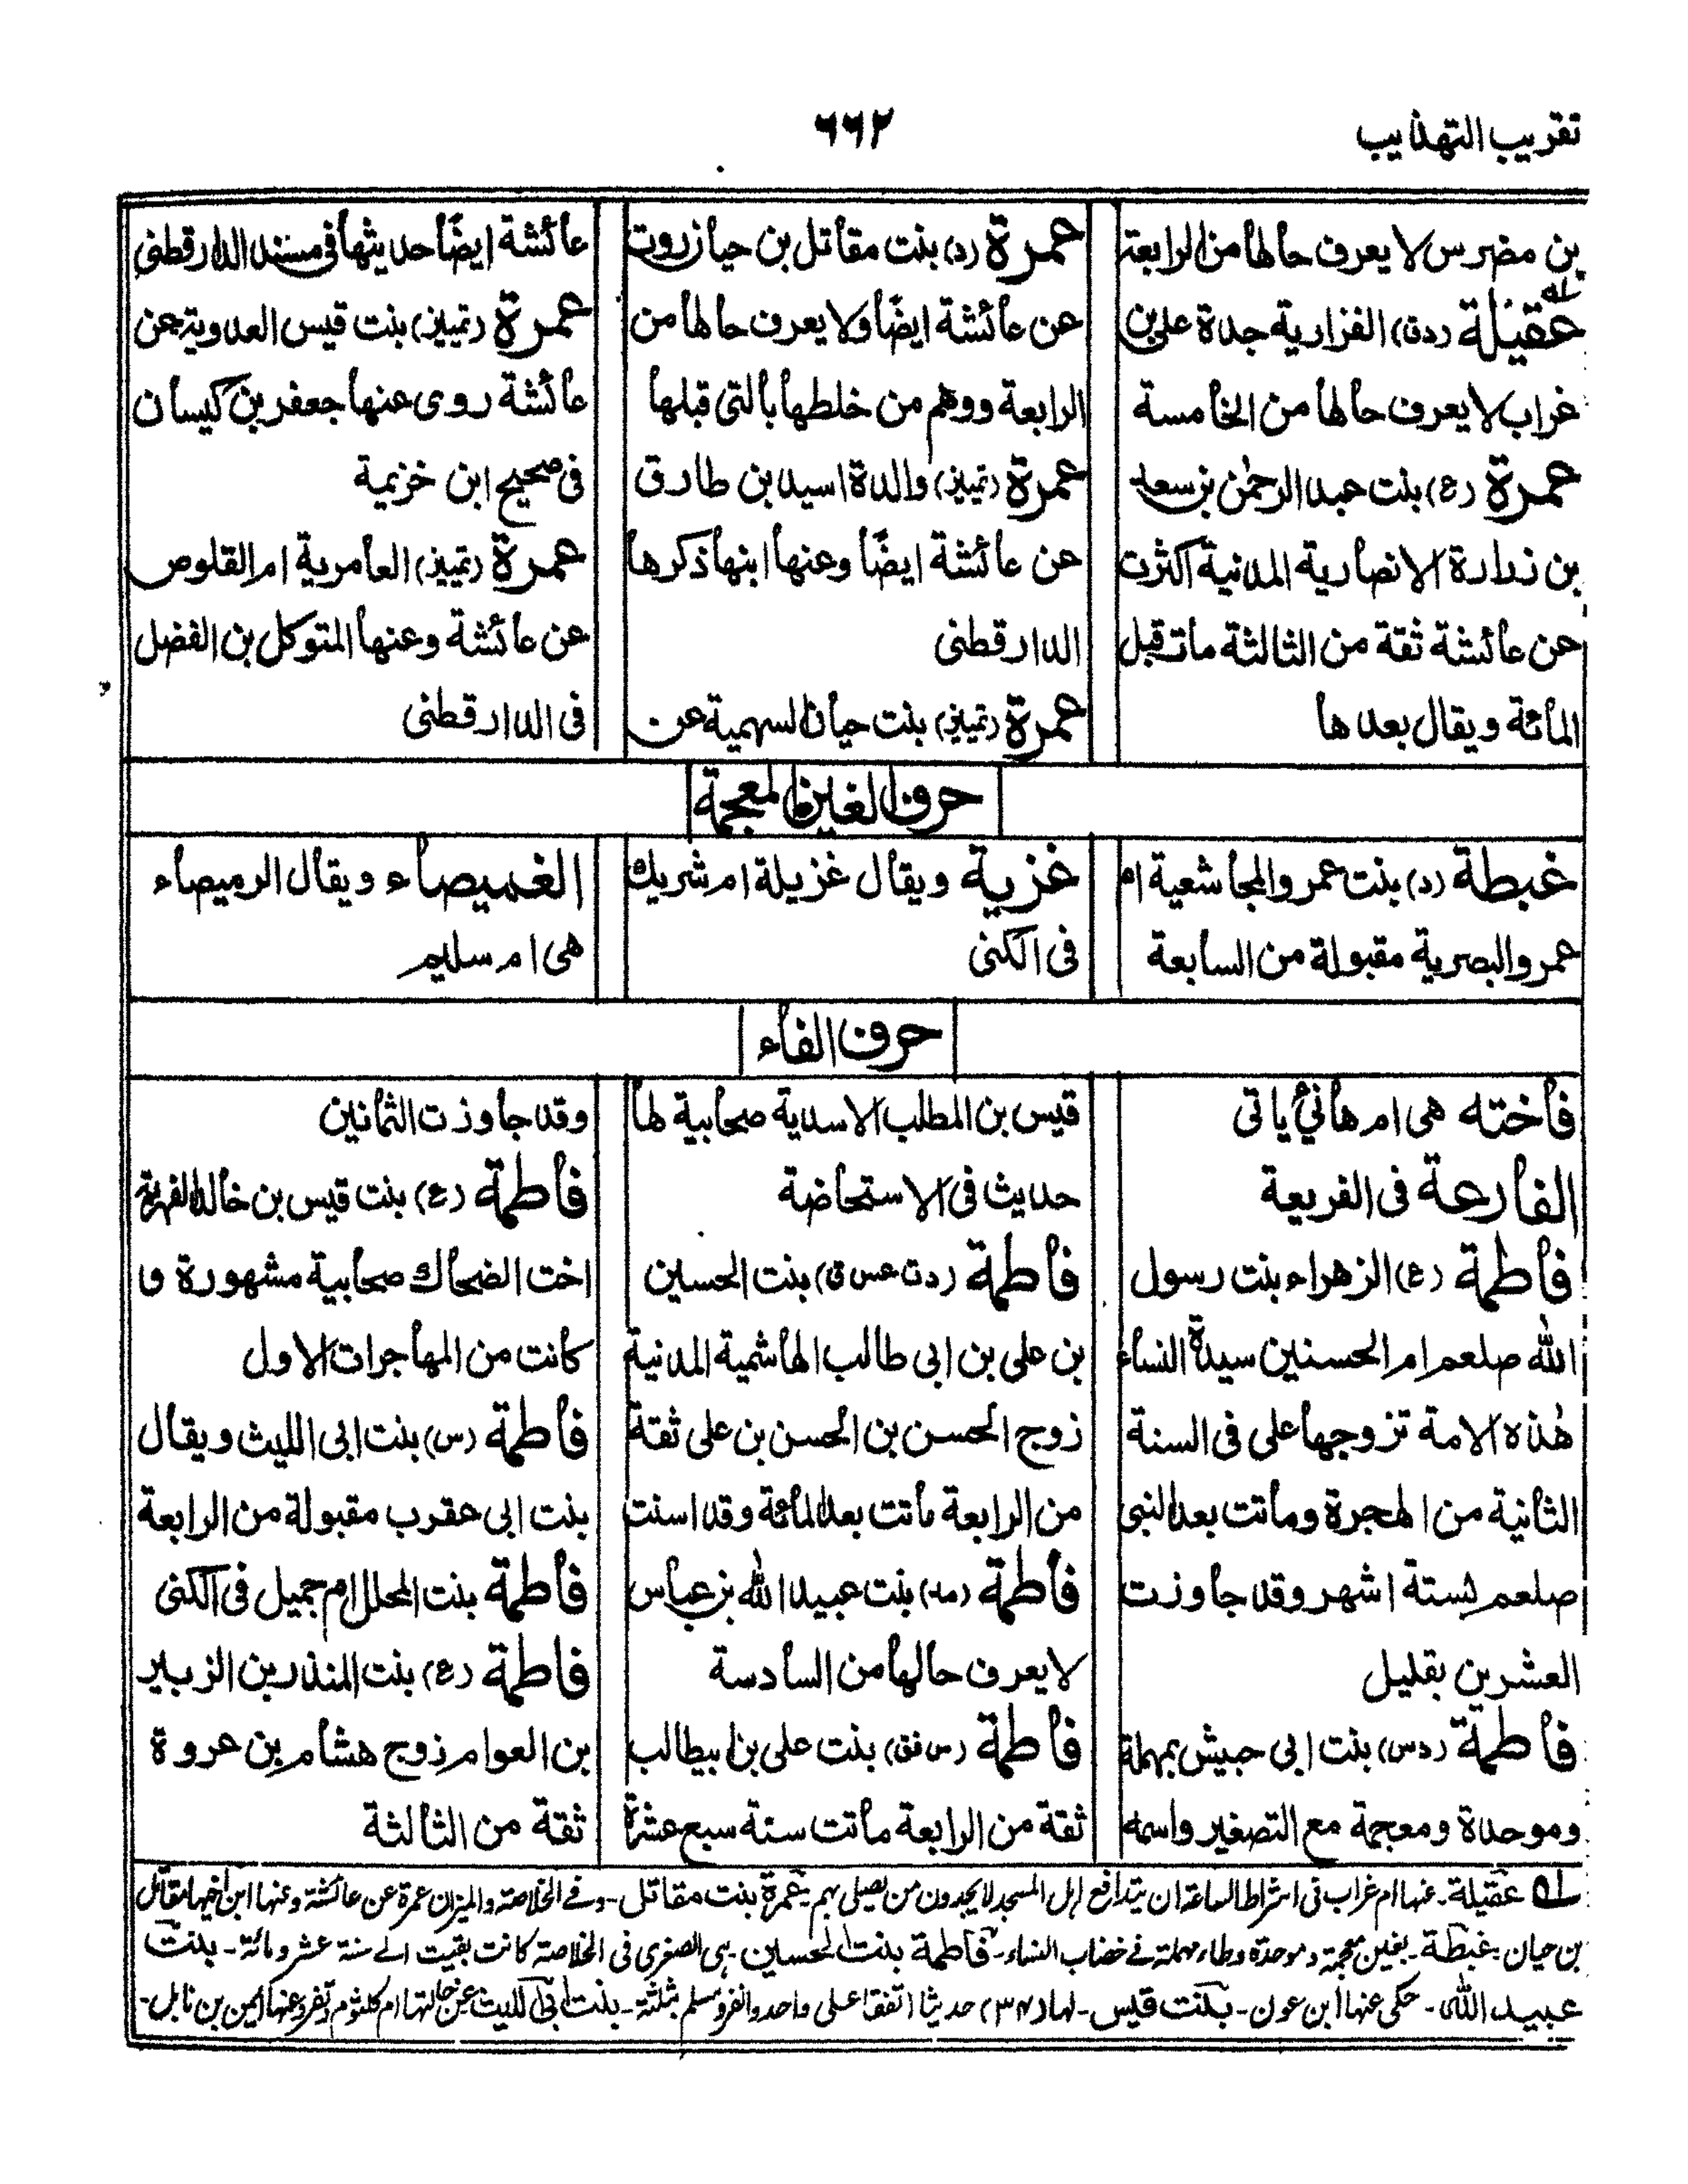 تقريب التهذيب
٦٦٢
بن مضرس لا يعرف حالها من الرابعة
عقيلة (دق) الفزارية جدة على بن
غراب لا يعرف حالها من الخامسة
عمرة (ع) بنت عبد الرحمٰن بن سعد
بن زرارة الانصارية المدنية اكثرت
عن عائشة ثقة من الثالثة ماتت قبل
المائة ويقال بعدها
عمرة (د) بنت مقاتل بن حيان روت
عن عائشة ايضًا ولا يعرف حالها من
الرابعة ووهم من خلطها بالتى قبلها
عمرة (تمييز) والدة اسيد بن طارق
عن عائشة ايضًا وعنها ابنها ذكرها
الدارقطنى
عمرة (تمييز) بنت حيان السهمية عن
عائشة ايضًا حديثها فى مسند الدارقطنى
عمرة (تمييز) بنت قيس العدوية عن
عائشة روى عنها جعفر بن كيسان
فى صحيح ابن خزيمة
عمرة (تمييز) العامرية ام القلوص
عن عائشة وعنها المتوكل بن الفضل
فى الدارقطنى
حرف الغين المعجمة
غبطة (د) بنت عمرو المجاشعية ام
عمرو البصرية مقبولة من السابعة
غزية ويقال غزيلة ام شريك
فى الكنى
الغميصاء ويقال الرميصاء
هى ام سليم
حرف الفاء
فاخته هى ام هانئ ياتى
الفارعة فى الفريعة
فاطمة (ع) الزهراء بنت رسول
الله صلعم ام الحسنين سيدة النساء
هٰذه الامة تزوجها على فى السنة
الثانية من الهجرة وماتت بعد النبى
صلعم بستة اشهر وقد جاوزت
العشرين بقليل
فاطمة (دس) بنت ابى حبيش بمهملة
وموحدة ومعجمة مع التصغير واسمه
قيس بن المطلب الاسدية صحابية لها
حديث فى الاستحاضة
فاطمة (دت عس ق) بنت الحسين
بن على بن ابى طالب الهاشمية المدنية
زوج الحسن بن الحسن بن على ثقة
من الرابعة ماتت بعد المائة وقد اسنت
فاطمة (مد) بنت عبيد الله بن عباس
لا يعرف حالها من السادسة
فاطمة (س فق) بنت على بن ابيطالب
ثقة من الرابعة ماتت سنة سبع عشرة
وقد جاوزت الثمانين
فاطمة (ع) بنت قيس بن خالد الفهرية
اخت الضحاك صحابية مشهورة و
كانت من المهاجرات الاول
فاطمة (س) بنت ابى الليث ويقال
بنت ابى عقرب مقبولة من الرابعة
فاطمة بنت المحلل ام جميل فى الكنى
فاطمة (ع) بنت المنذر بن الزبير
بن العوام زوج هشام بن عروة
ثقة من الثالثة
له عقيلة ـ عنها ام غراب فى اشراط الساعة ان يتدافع اهل المسجد لا يجدون من يصلى بهم ـ عمرة بنت مقاتل ـ وفے الخلاصة والميزان عمرة عن عائشة وعنها ابن اخيها مقاتل
بن حيان ـ غبطة ـ بغين معجمة وموحدة وطاء مهملة فے خضاب النساء ـ فاطمة بنت الحسين ـ ہى الصغرى فى الخلاصة كانت بقيت الے سنة عشر ومائة ـ بنت
عبيد الله ـ حكى عنها ابن عون ـ بنت قيس ـ لها (٣٤) حديثا اتفقا على واحد وانفرد مسلم بثلثة ـ بنت ابى الليث عن خالتها ام كلثوم وتفرد عنها ايمن بن نابل ـ